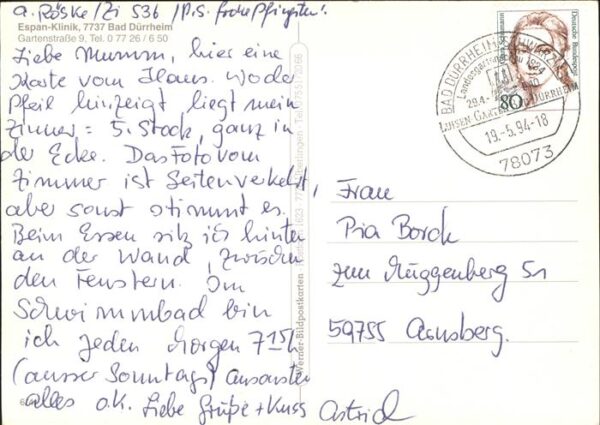 A. Röske / Zi 536 / P.S. frohe Pfingsten!
Espan-Klinik, 7737 Bad Dürrheim
Gartenstraße 9, Tel. 0 77 26 / 6 50
Liebe Mumm, hier eine
Karte vom Haus. Wo der
Pfeil hinzeigt, liegt mein
Zimmer = 5. Stock, ganz in
der Ecke. Das Foto vom
Zimmer ist Seitenverkehrt,
aber sonst stimmt es.
Beim Essen sitz ich hinten
an der Wand, zwischen
den Fenstern. Im
Schwimmbad bin
ich jeden Morgen 7 15h
(ausser Sonntags) Ansonsten
alles o.K. Liebe Grüße + Kuss Astrid
Werner-Bildpostkarten
Deutsche Bundespost
80
BAD DÜRRHEIM
Landesgartenschau 1994
LUISEN-GARTEN BAD DÜRRHEIM
19.-5.94-18
78073
Frau
Pia Borck
zum Müggenberg 51
59755 Arnsberg.